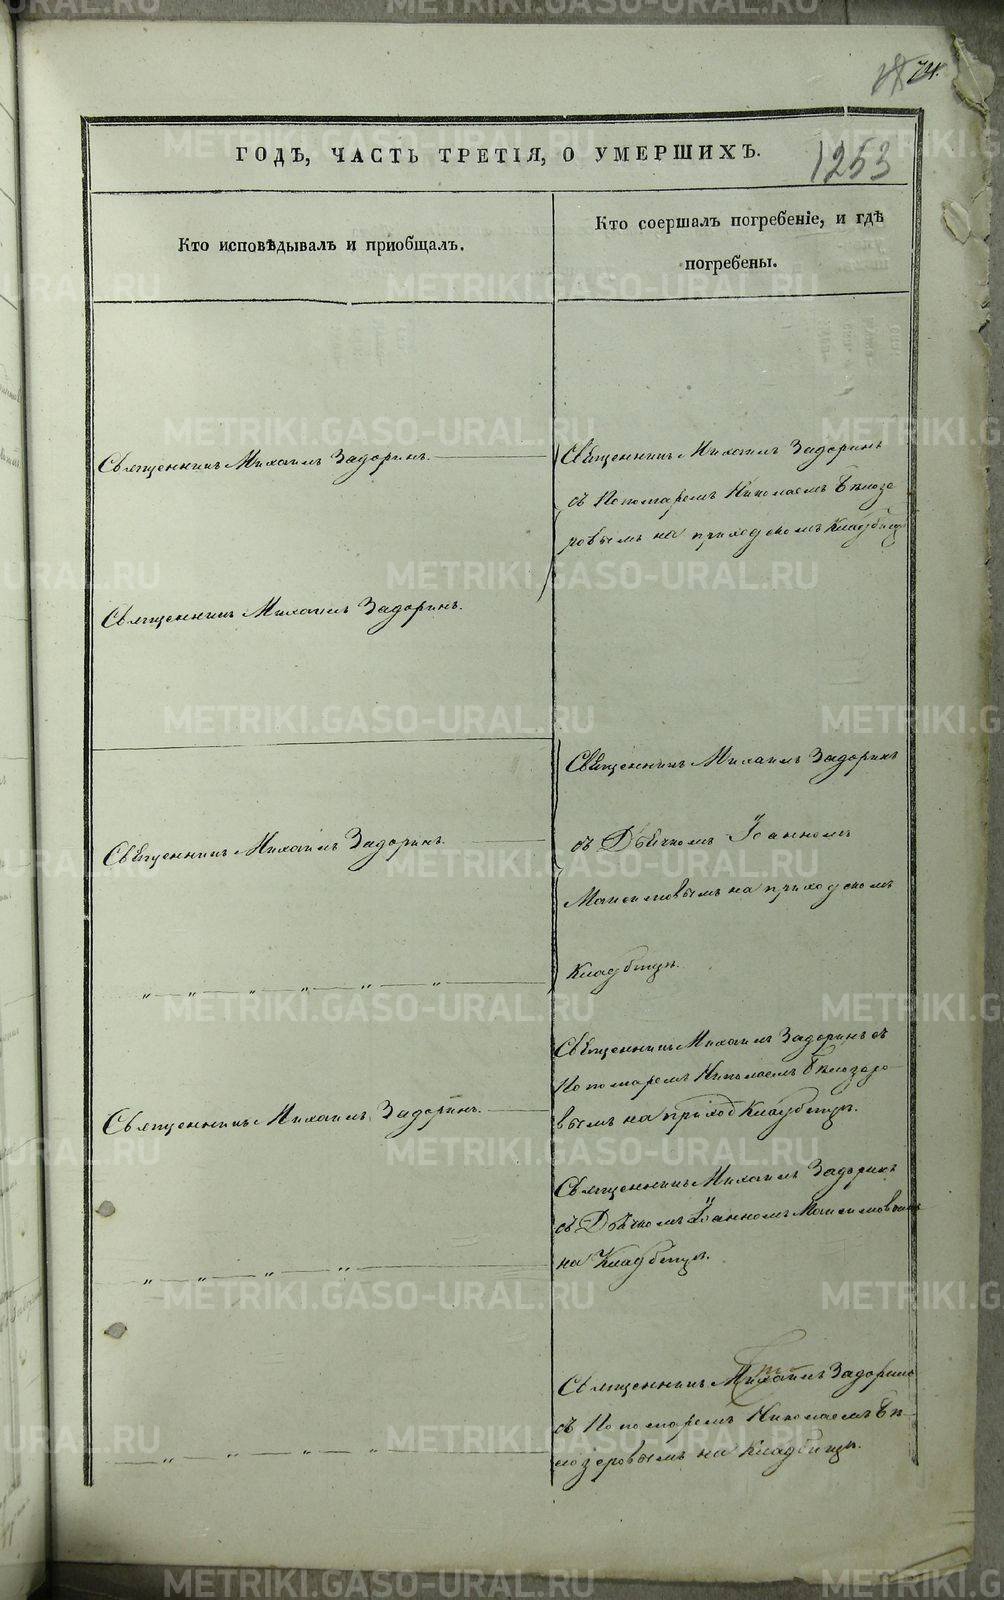 74.
1253
ГОДѢ, ЧАСТЬ ТРЕТІЯ, О УМЕРШИХЪ.
Кто исповѣдывалъ и пріобщалъ.
Кто соершалъ погребеніе, и гдѣ
погребены.
Священникъ Михаилъ Задоринъ.
Священникъ Михаилъ Задоринъ
съ Пономаремъ Николаемъ Бѣлозе
ровымъ на приходскомъ Кладбищѣ
Священникъ Михаилъ Задоринъ.
Священникъ Михаилъ Задоринъ
съ Дьячкомъ Іоанномъ
Священникъ Михаилъ Задоринъ.
Максимовымъ на приходскомъ
Кладбищѣ.
„ — „ — „ — „ — „ — „
Священникъ Михаилъ Задоринъ съ
Пономаремъ Николаемъ Бѣлозеро-
вымъ на приход Кладбищѣ.
Священникъ Михаилъ Задоринъ.
Священникъ Михаилъ Задоринъ
съ Дьячкомъ Іоанномъ Максимовымъ
на Кладбищѣ.
„ — „ — „ — „
Священникъ Михаилъ Задоринъ
съ Пономаремъ Николаемъ Бѣ-
лозеровымъ на Кладбищѣ.
„ — „ — „ — „
METRIKI.GASO-URAL.RU